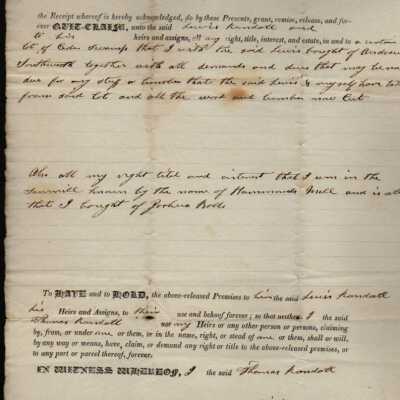 the Receipt whereof is hereby acknowledged, do by these Presents, grant, remise, release, and for-
ever QUIT-CLAIM, unto the said Lewis Randall and
to his heirs and assigns, all my right, title, interest, and estate, in and to a certain
lot of Ceder Swamp that I with the said Lewis bought of
Southworth together with all demands and dues that may be
due for any stuf or lumber that the said Lewis & myself have
from said Lot and all the wood and lumber now Cut
Also all my right titel and interest that I am in the
known by the name of Hammonds Mill and is
that I bought of Joshua
To HAVE and to HOLD, the above-released Premises to him the said Lewis Randall
his Heirs and Assigns, to their use and behoof forever; so that neither I the said
Thomas Randall nor my Heirs or any other person or persons, claiming
by, from, or under me or them, or in the name, right, or stead of me or them, shall or will,
by any way or means, have, claim, or demand any right or title to the above-released premises, or
to any part or parcel thereof, forever.
IN WITNESS WHEREOF, I the said Thomas Randall